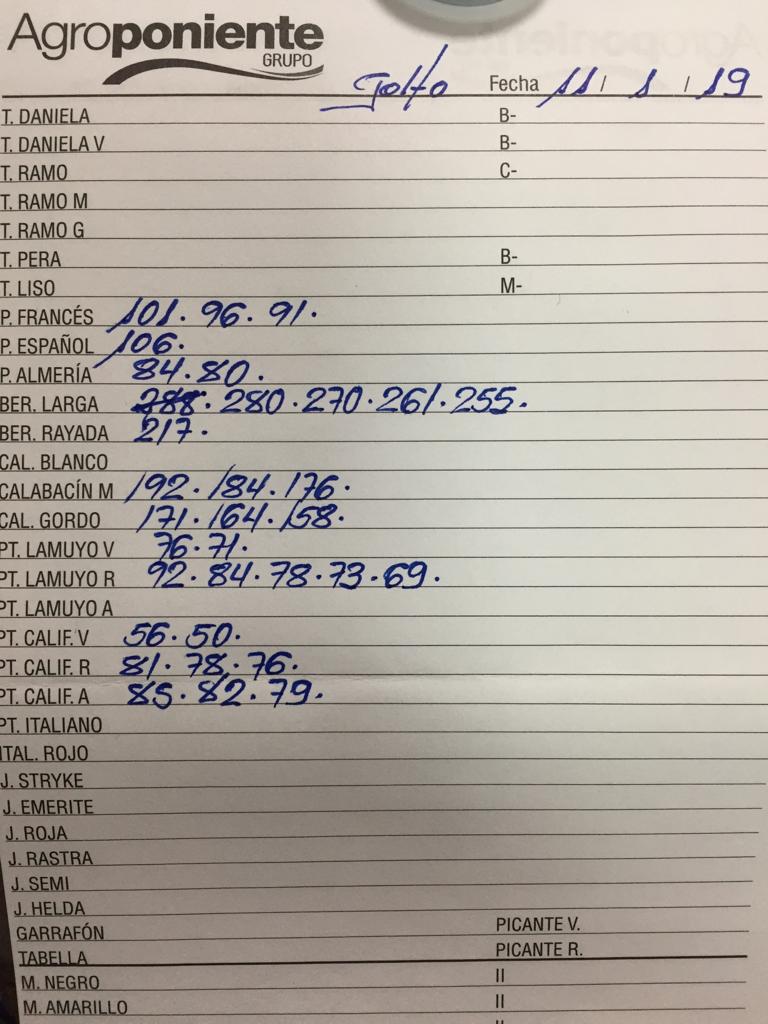 Agroponiente
GRUPO
Golfo Fecha 11 / 1 / 19
T. DANIELA B-
T. DANIELA V B-
T. RAMO C-
T. RAMO M
T. RAMO G
T. PERA B-
T. LISO M-
P. FRANCÉS 101. 96. 91.
P. ESPAÑOL 106.
P. ALMERÍA 84. 80.
BER. LARGA 288. 280. 270. 261. 255.
BER. RAYADA 217.
CAL. BLANCO
CALABACÍN M 192. 184. 176.
CAL. GORDO 171. 164. 158.
PT. LAMUYO V 76. 71.
PT. LAMUYO R 92. 84. 78. 73. 69.
PT. LAMUYO A
PT. CALIF. V 56. 50.
PT. CALIF. R 81. 78. 76.
PT. CALIF. A 85. 82. 79.
PT. ITALIANO
ITAL. ROJO
J. STRYKE
J. EMERITE
J. ROJA
J. RASTRA
J. SEMI
J. HELDA
GARRAFÓN PICANTE V.
TABELLA PICANTE R.
M. NEGRO II
M. AMARILLO II